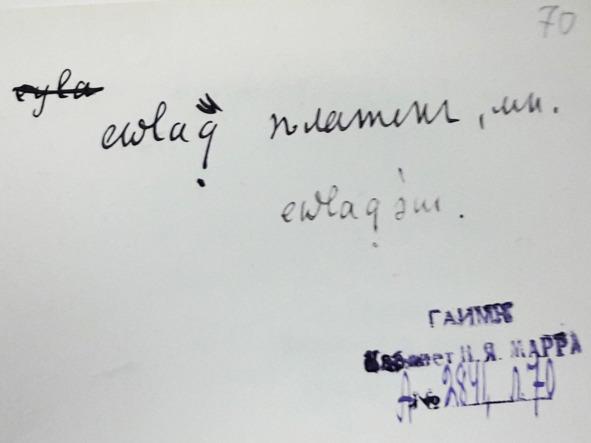 70
ewlaq̣ платок, мн.
ewlaq̣əm.
ГАИМК
Кабинет Н. Я. МАРРА
А № 2841, л. 70